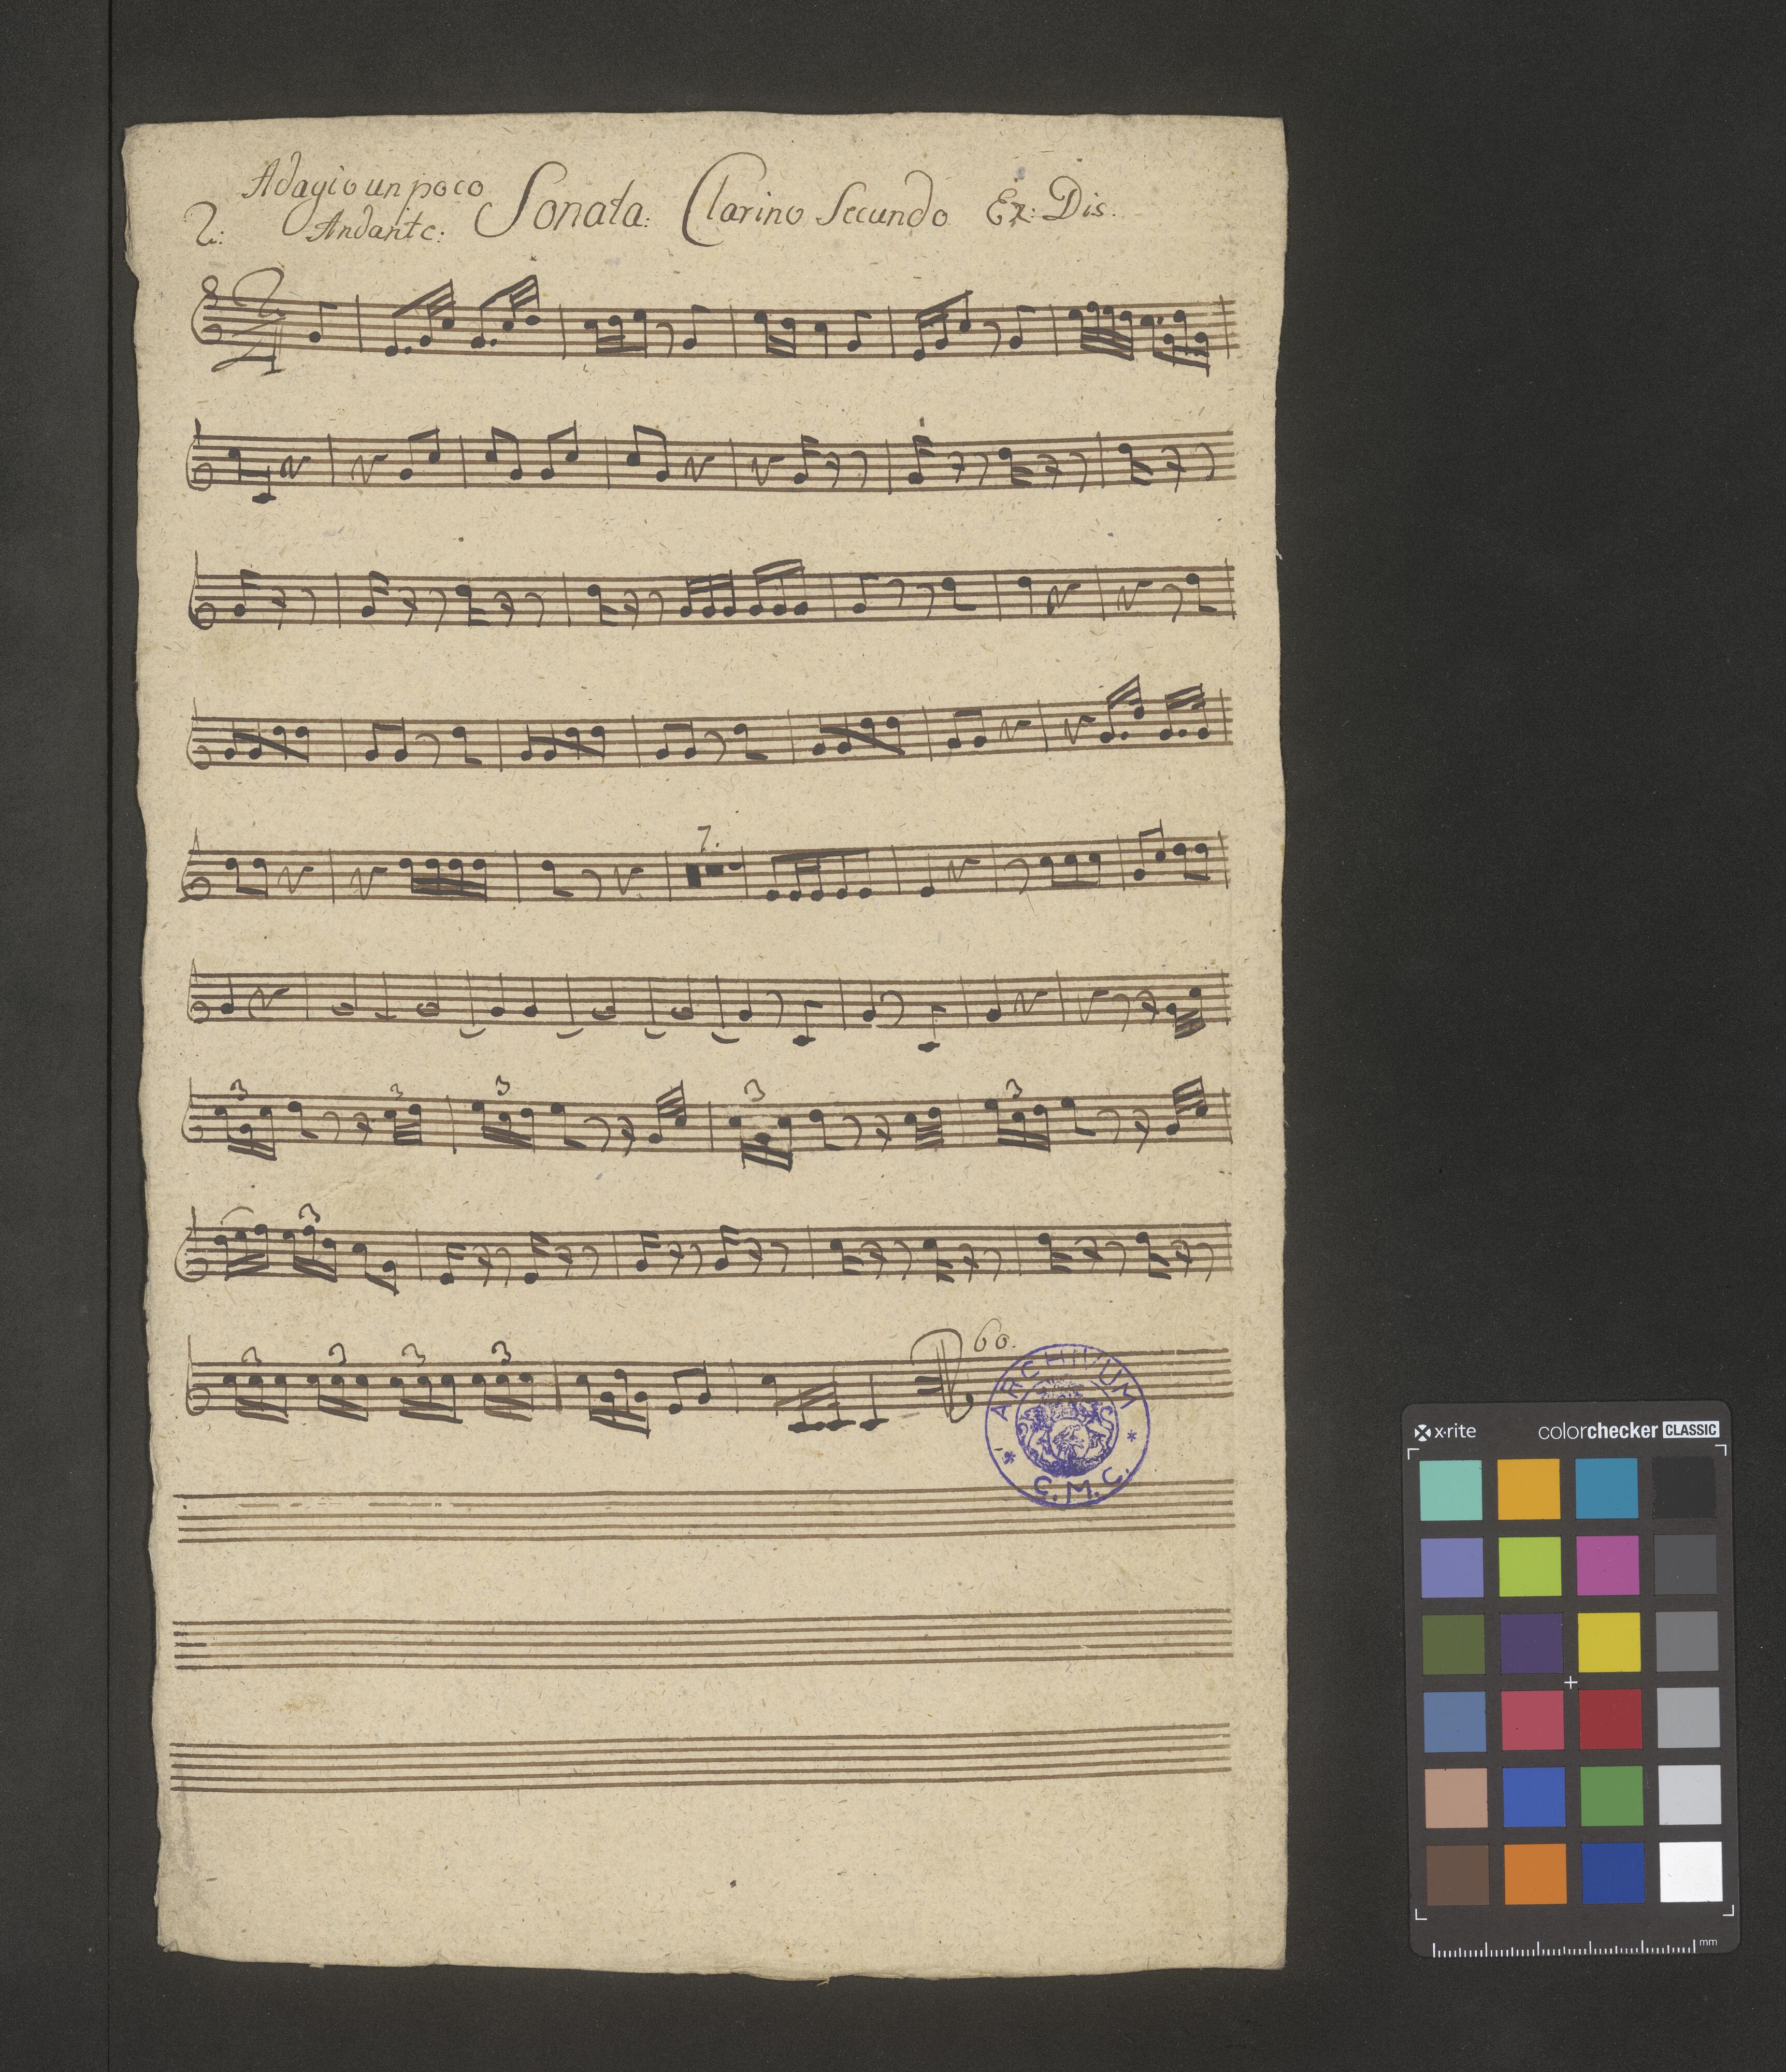 Adagio un poco
Andante:
2:
Sonata: Clarino Secundo Ex: Dis.
2
4
7.
3
3
3
3
3
3
3
3
3
3
60.
ARCHIVUM
* C. M. C. *
x-rite
colorchecker CLASSIC
mm